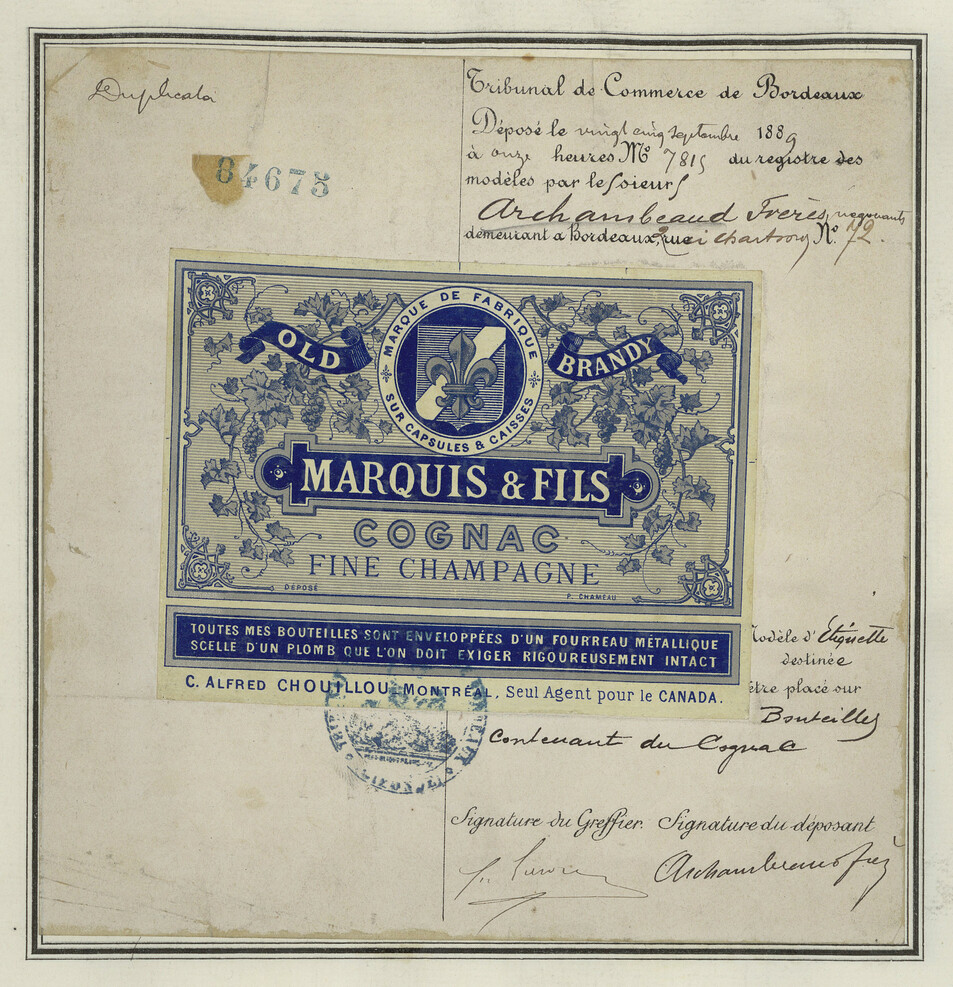 Duplicata
84675
Tribunal de Commerce de Bordeaux
Déposé le vingt cinq septembre 1889
à onze heures No 7815 du registre des
modèles par le Soieurs
Archambeaud Frères, négociants
demeurant à Bordeaux, rue No. 72.
OLD
BRANDY
MARQUE DE FABRIQUE
SUR CAPSULES & CAISSES
MARQUIS & FILS
COGNAC
FINE CHAMPAGNE
DÉPOSÉ
P. CHAMEAU
TOUTES MES BOUTEILLES SONT ENVELOPPÉES D'UN FOURREAU MÉTALLIQUE
SCELLÉ D'UN PLOMB QUE L'ON DOIT EXIGER RIGOUREUSEMENT INTACT
C. ALFRED CHOUILLOU, MONTRÉAL, Seul Agent pour le CANADA.
odèle d'Étiquette
destinée
être placé sur
Bouteilles
contenant du Cognac
Signature du Greffier. Signature du déposant